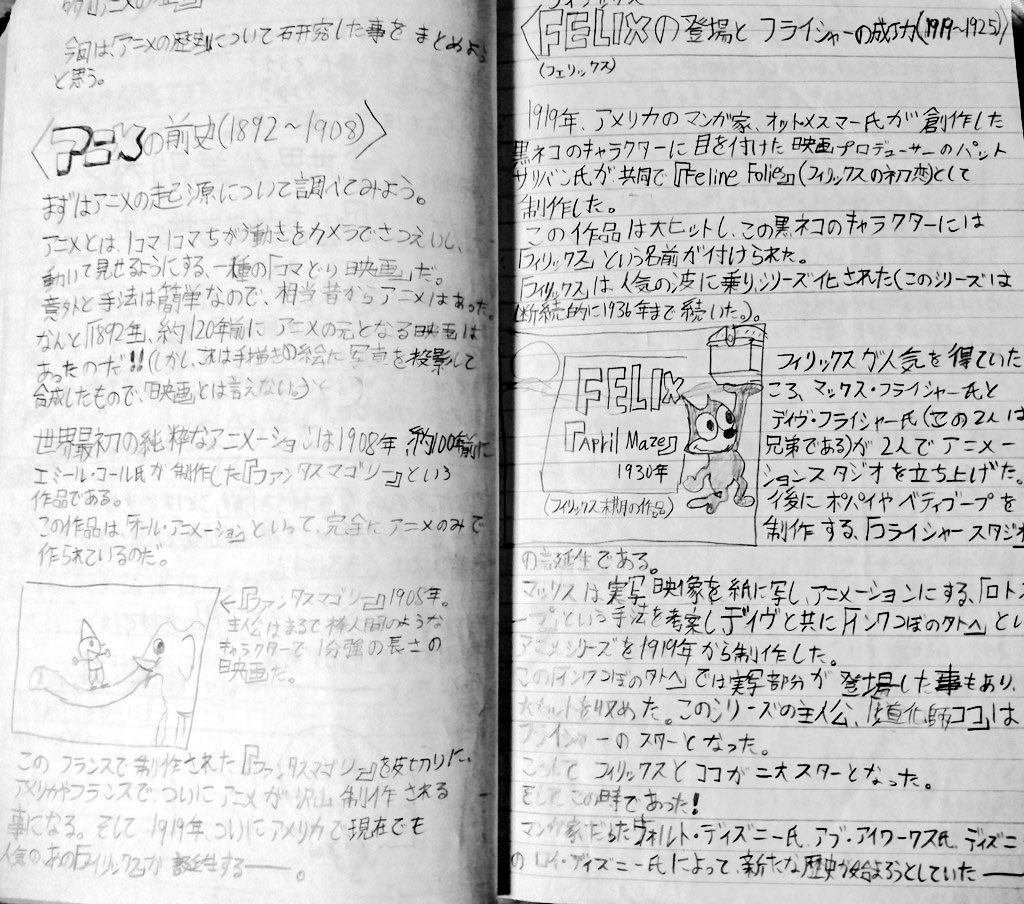 今回はアニメの歴史について研究した事をまとめよう
と思う。
〈アニメの前史(1892～1908)〉
まずはアニメの起源について調べてみよう。
アニメとは、1コマ1コマちがう動きをカメラでさつえいし、
動いて見せるようにする、一種の「コマどり映画」だ。
意外と手法は簡単なので、相当昔からアニメはあった。
なんと「1892年」、約120年前にアニメの元となる映画は
あったのだ!!(しかし、これは手描きの絵に写真を投影して
合成したもので、「映画」とは言えない。)
世界最初の純粋なアニメーションは1908年、約100年前に
エミール・コール氏が制作した『ファンタスマゴリー』という
作品である。
この作品は、「オール・アニメーション」といって、完全にアニメのみで
作られているのだ。
←『ファンタスマゴリー』1908年。
主人公はまるで棒人間のような
キャラクターで1分強の長さの
映画だ。
このフランスで制作された『ファンタスマゴリー』を皮切りに、
アメリカやフランスで、ついにアニメが沢山制作される
事になる。そして1919年、ついにアメリカで現在でも
人気のあの「フィリックス」が誕生する――。
〈FELIXの登場とフライシャーの成功(1919～1925)〉
(フェリックス)
1919年、アメリカのマンガ家、オットー・メスマー氏が創作した
黒ネコのキャラクターに目を付けた映画プロデューサーのパット
サリバン氏が共同で『Feline Folies』(フィリックスの初恋)として
制作した。
この作品は大ヒットし、この黒ネコのキャラクターには
「フィリックス」という名前が付けられた。
「フィリックス」は人気の波に乗り、シリーズ化された(このシリーズは
断続的に1936年まで続いた。)。
FELIX
『April Maze』
1930年
(フィリックス末期の作品)
フィリックスが人気を得ていた
ころ、マックス・フライシャー氏と
デイヴ・フライシャー氏(この2人は
兄弟である)が2人でアニメー
ションスタジオを立ち上げた。
後にポパイやベティブープを
制作する、「フライシャースタジオ
の誕生である。
マックスは実写映像を紙に写し、アニメーションにする、「ロトス
ープ」という手法を考案し、デイヴと共に「インクつぼの外へ」とい
アニメシリーズを1919年から制作した。
この「インクつぼの外へ」では実写部分が登場した事もあり、
大ヒットを収めた。このシリーズの主人公、「道化師ココ」は
フライシャーのスターとなった。
こうしてフィリックスとココが二大スターとなった。
そしてこの時であった!
マンガ家だったウォルト・ディズニー氏、アブ・アイワークス氏、ディズニ
のロイ・ディズニー氏によって、新たな歴史が始まろうとしていた――